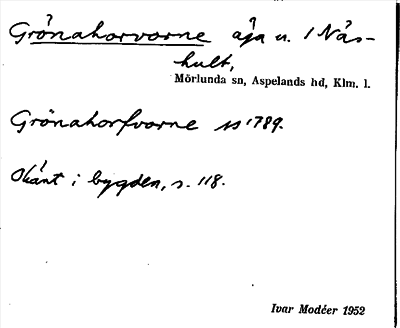 Grönahorvorne åja u. / Näs-
hult,
Mörlunda sn, Aspelands hd, Klm. l.
Grönahorfvorne 1789.
Okänt i bygden, s. 118.
Ivar Modéer 1952